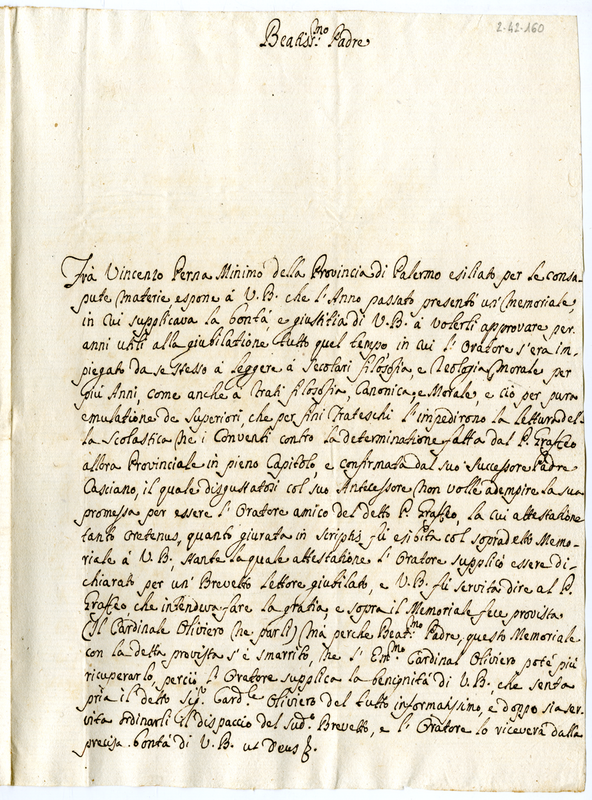 2-42-160
Beatiss.mo Padre
Frà Vincenzo Perna Minimo della Provincia di Palermo esiliato per le consa-
pute materie espone à V.B. che l'Anno passato presentò un Memoriale,
in cui supplicava la bontà, e giustitia di V.B. à volerli approvare per
anni utili alla giubilatione tutto quel tempo in cui l'Oratore s'era im-
piegato da se stesso à leggere à secolari filosofia, e Teologia Morale per
più Anni, come anche à frati filosofia, Canonica, e Morale, e ciò per pura
emulatione de Superiori, che per fini frateschi l'impedirono la lettura del-
la scolastica ne i Conventi contro la determinatione fatta dal P. Graffeo
allora Provinciale in pieno Capitolo, e confirmata dal suo successore Padre
Casciano, il quale disgustatosi col suo Antecessore non volle adempire la sua
promessa per essere l'Oratore amico del detto P. Graffeo, la cui attestatione
tanto oretenus, quanto giurata in scriptis fù esibita col sopradetto Memo-
riale à V.B., stante la quale attestatione l'Oratore supplicò essere di-
chiarato per un' Brevetto lettore giubilato, e V.B. fù servita dire al P.
Graffeo, che intendeva fare la gratia, e sopra il Memoriale fece provista
(Il Cardinale Oliviero ne parli) mà perche Beat.mo Padre, questo Memoriale
con la detta provista s'è smarrito, ne l'Em.mo Cardinal Oliviero potè più
ricuperarlo, perciò l'Oratore supplica la benignità di V.B. che senta
pria il detto Sig.r Card.le Oliviero del tutto informatissimo, e doppo sia ser-
vita ordinarli il dispaccio del sud.o Brevetto, e l'Oratore lo riceverà dalla
precisa bontà di V.B. ut Deus